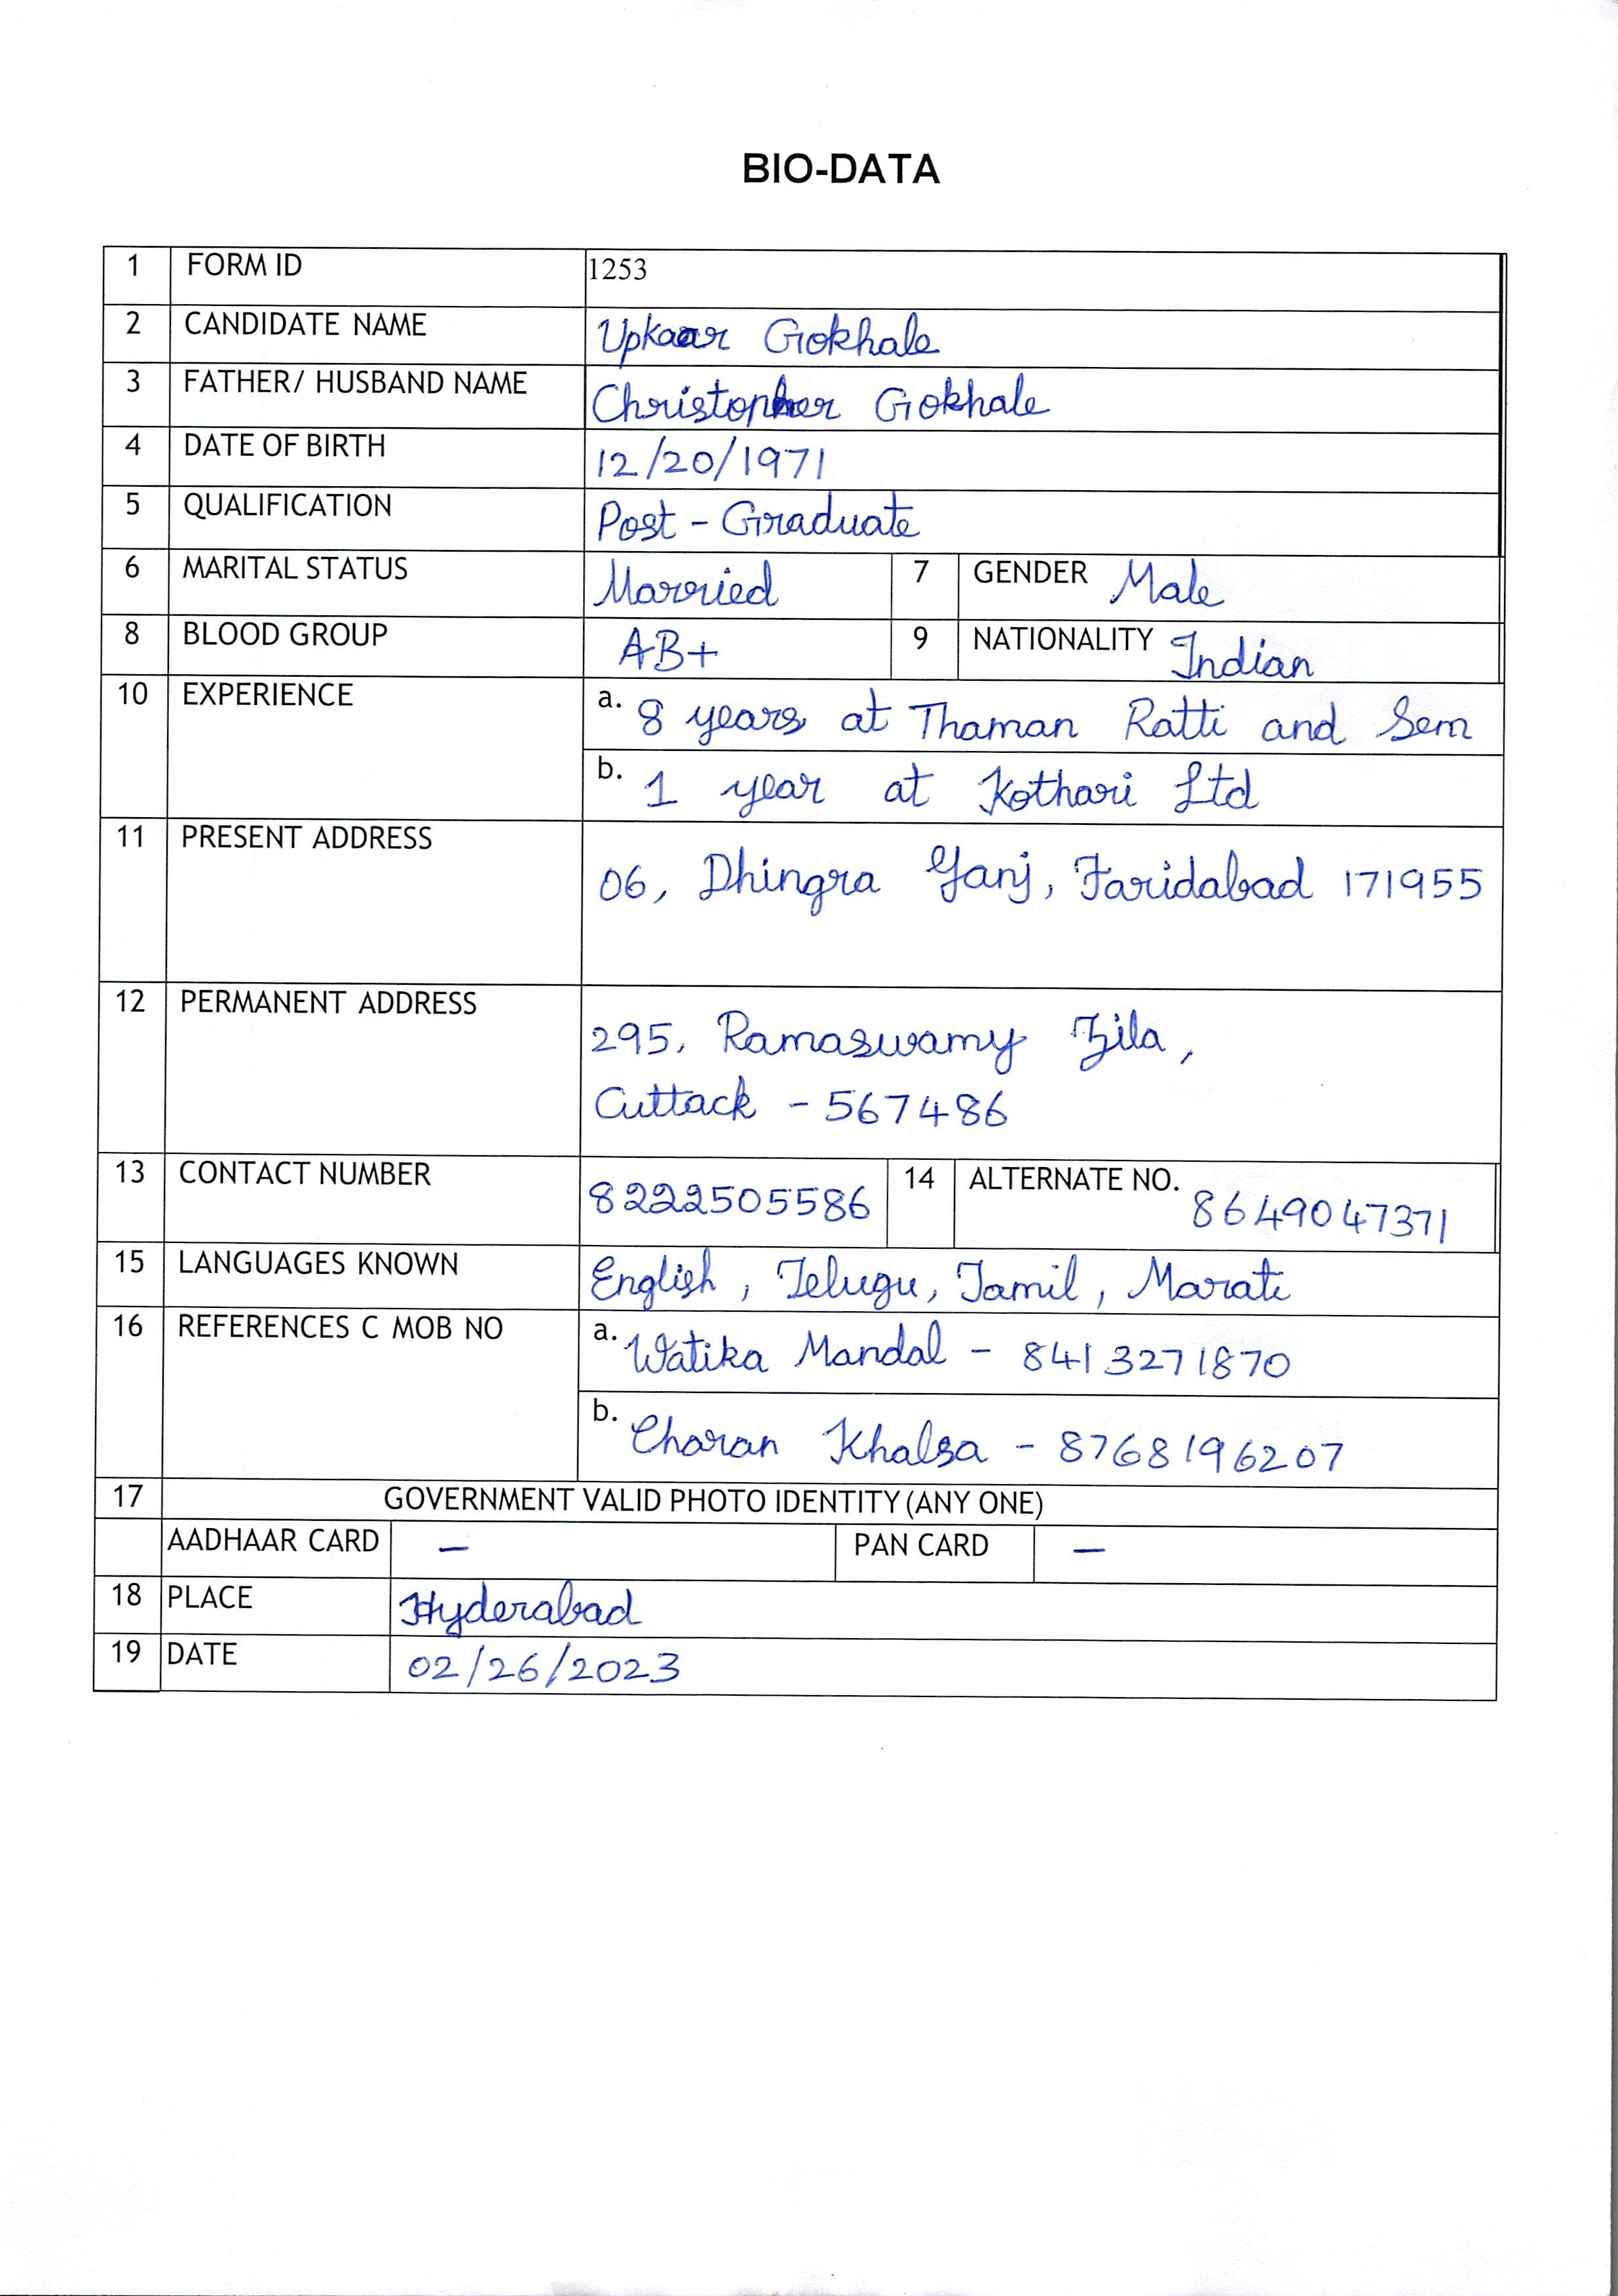 BIO-DATA
1 FORM ID 1253
2 CANDIDATE NAME Upkaar Gokhale
3 FATHER/ HUSBAND NAME Christopher Gokhale
4 DATE OF BIRTH 12/20/1971
5 QUALIFICATION Post - Graduate
6 MARITAL STATUS Married 7 GENDER Male
8 BLOOD GROUP AB+ 9 NATIONALITY Indian
10 EXPERIENCE a. 8 years at Thaman Ratti and Sem
b. 1 year at Kothari Ltd
11 PRESENT ADDRESS 06, Dhingra Ganj, Faridabad 171955
12 PERMANENT ADDRESS 295, Ramaswamy Zila,
Cuttack - 567486
13 CONTACT NUMBER 8222505586 14 ALTERNATE NO. 8649047371
15 LANGUAGES KNOWN English, Telugu, Tamil, Marati
16 REFERENCES C MOB NO a. Watika Mandal - 8413271870
b. Charan Khalsa - 8768196207
17 GOVERNMENT VALID PHOTO IDENTITY (ANY ONE)
AADHAAR CARD - PAN CARD -
18 PLACE Hyderabad
19 DATE 02/26/2023